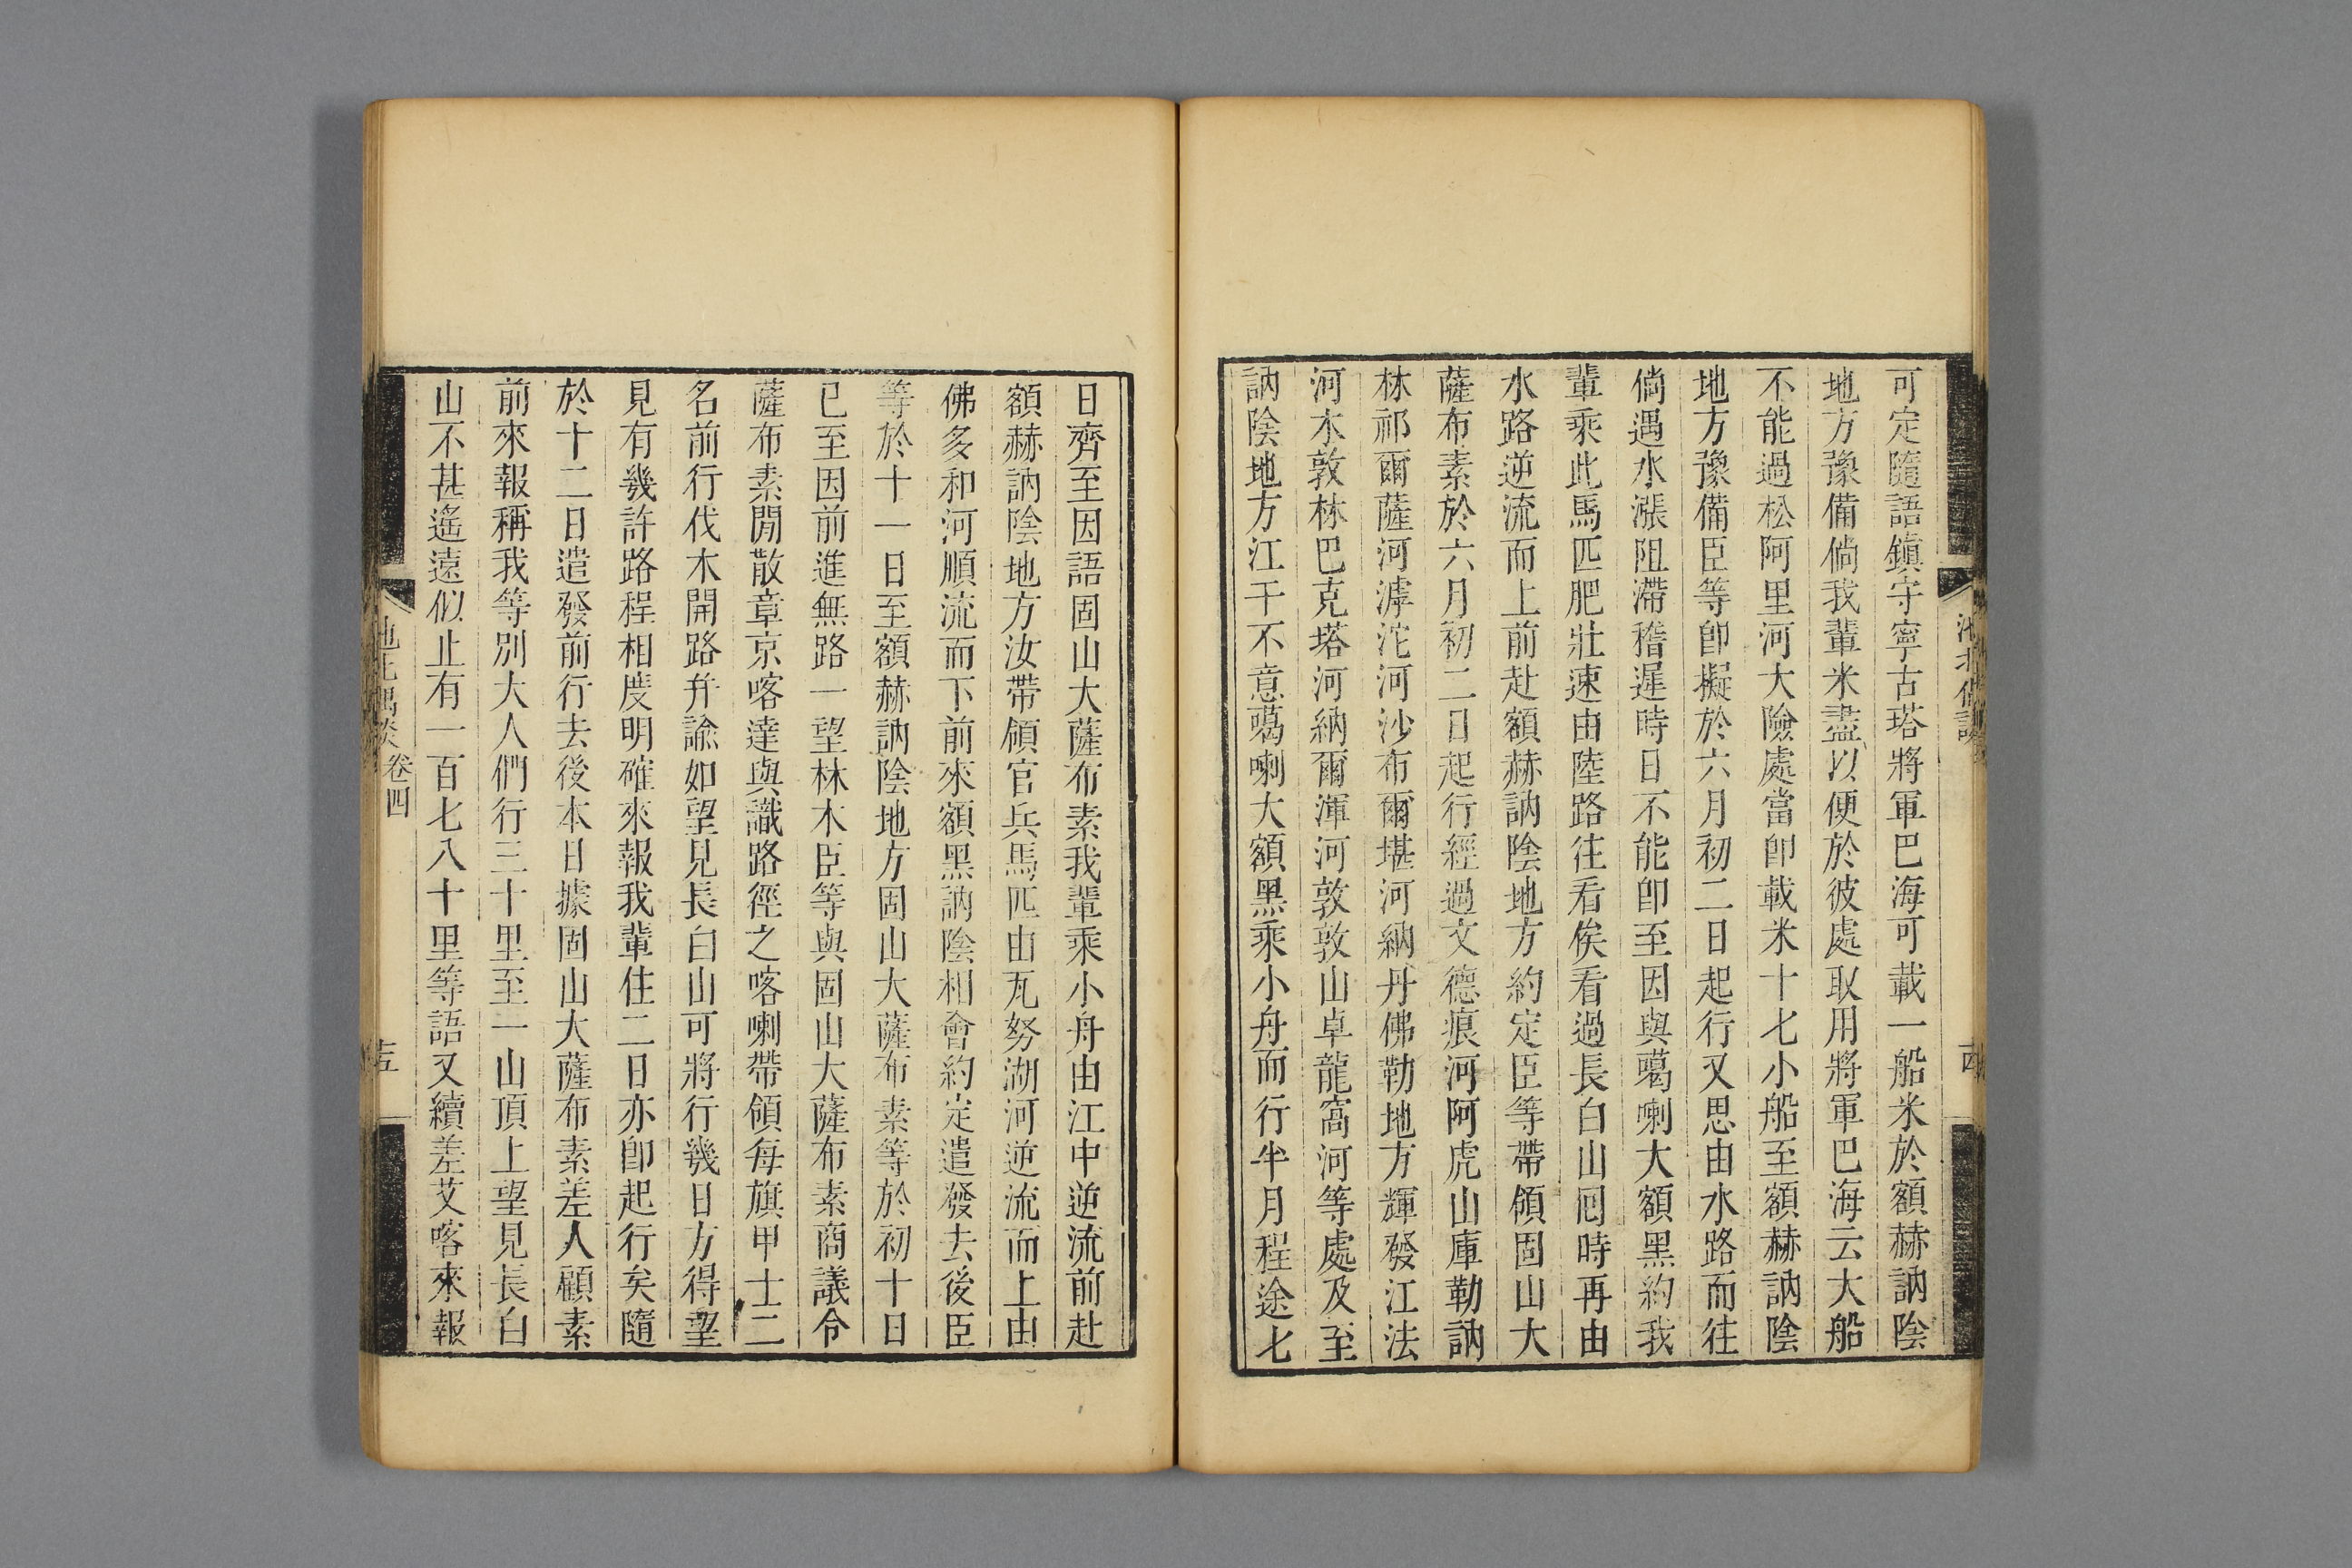 可定隨語鎮守寧古塔將軍巴海可載一船米於額赫訥陰
地方豫備倘我輩米盡以便於彼處取用將軍巴海云大船
不能過松阿里河大險處當卽載米十七小船至額赫訥陰
地方豫備臣等卽擬於六月初二日起行又思由水路而往
倘遇水漲阻滯稽遲時日不能卽至因與噶喇大額黑約我
輩乘此馬匹肥壯速由陸路往看俟看過長白山囘時再由
水路逆流而上前赴額赫訥陰地方約定臣等帶領固山大
薩布素於六月初二日起行經過文德痕河阿虎山庫勒訥
林祁爾薩河滹沱河沙布爾堪河納丹佛勒地方輝發江法
河木敦林巴克塔河納爾渾河敦敦山卓龍窩河等處及至
訥陰地方江干不意噶喇大額黑乘小舟而行半月程途七
日齊至因語固山大薩布素我輩乘小舟由江中逆流前赴
額赫訥陰地方汝帶領官兵馬匹由瓦努湖河逆流而上由
佛多和河順流而下前來額黑訥陰相會約定遣發去後臣
等於十一日至額赫訥陰地方固山大薩布素等於初十日
已至因前進無路一望林木臣等與固山大薩布素商議令
薩布素閒散章京喀達與識路徑之喀喇帶領每旗甲士二
名前行伐木開路幷諭如望見長白山可將行幾日方得望
見有幾許路程相度明確來報我輩住二日亦卽起行矣隨
於十二日遣發前行去後本日據固山大薩布素差人顧素
前來報稱我等別大人們行三十里至一山頂上望見長白
山不甚遙遠似止有一百七八十里等語又續差艾喀來報
卷四